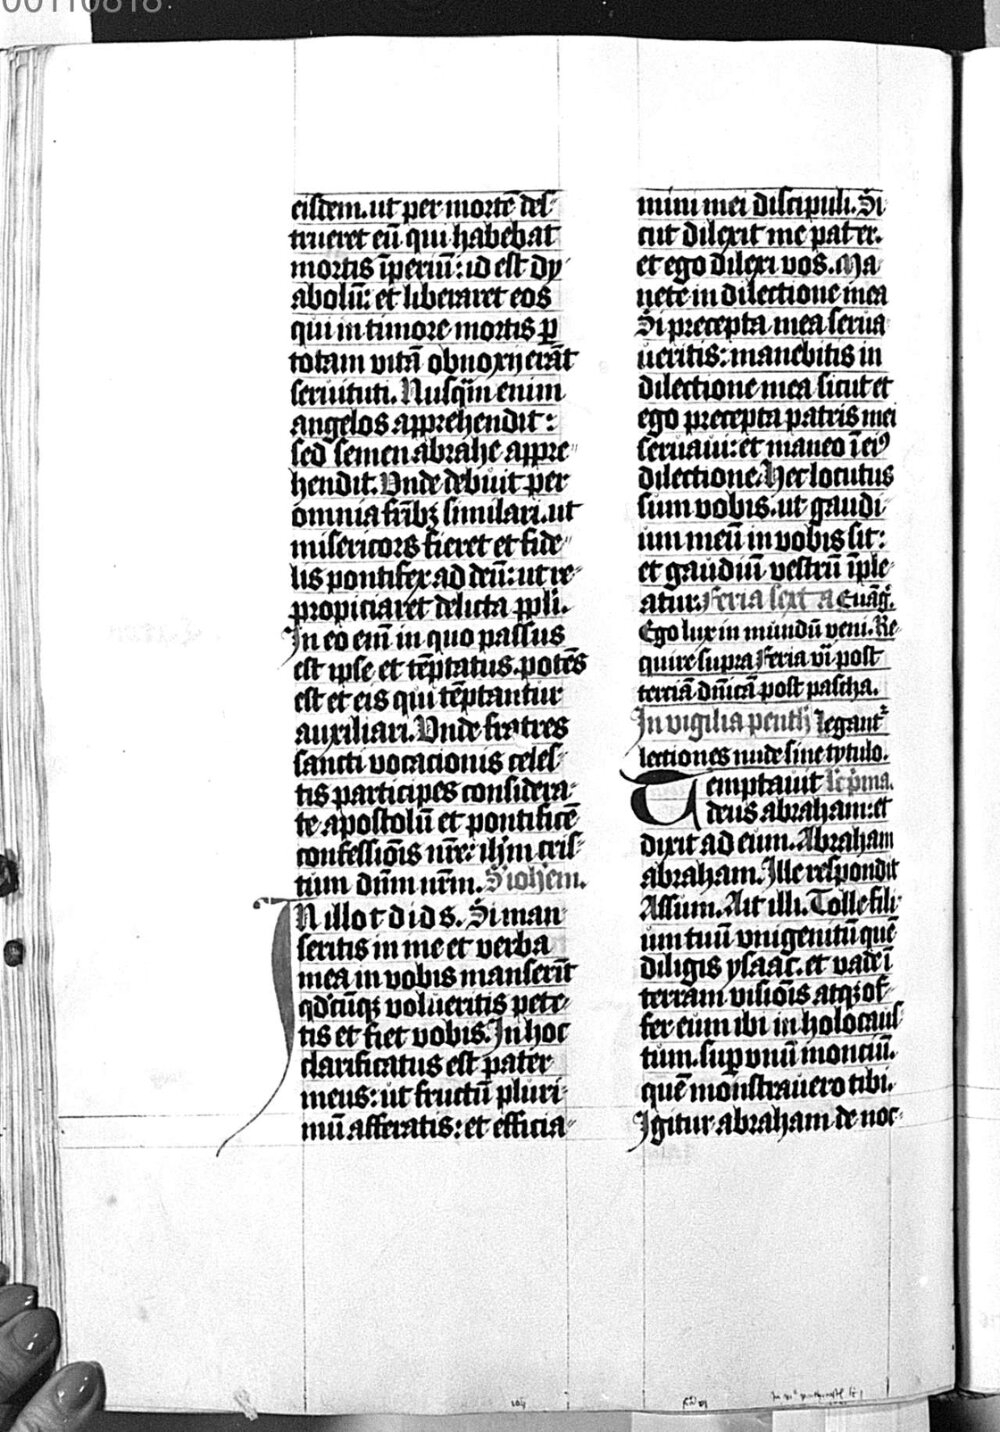 00110818
eisdem. ut per mortē des-
trueret eū qui habebat
mortis īperiū: id est dy-
abolū: et liberaret eos
qui in timore mortis ꝑ
totam vitā obnoxij erāt
seruituti. Nusq̄m enim
angelos apprehendit:
sed semen abrahe appre-
hendit. Vnde debuit per
omnia fr̄ibꝫ similari. ut
misericors fieret et fide-
lis pontifex ad deū: ut re-
propiciaret delicta ppl̄i.
In eo em̄ in quo passus
est ipse et tēptatus. potēs
est et eis qui tēptantur
auxiliari. Vnde fratres
sancti vocacionis celes-
tis participes considera-
te apostolū et pontificē
confessiōis nr̄e: ih̄m cris-
tum dn̄m nr̄m. S iohem.
IN illo t d i d s. Si man-
seritis in me et verba
mea in vobis manserīt
qd̄cūqꝫ volueritis pete-
tis et fiet vobis. In hoc
clarificatus est pater
meus: ut fructū pluri-
mū afferatis: et efficia-
mini mei discipuli. Si-
cut dilexit me pater.
et ego dilexi vos. Ma-
nete in dilectione mea
Si precepta mea serua-
ueritis: manebitis in
dilectione mea sicut et
ego precepta patris mei
seruaui: et maneo ī eiꝰ
dilectione. Hec locutus
sum vobis. ut gaudi-
um meū in vobis sit:
et gaudiū vestrū īple-
atur. Feria sexta Euāg̅.
Ego lux in mundū veni. Re-
quire supra Feria vi post
terciā dn̄icā post pascha.
In vigilia penth̄ legant᷑
lectiones nude sine tytulo.
Temptauit lc̄ p̄ma.
deus abraham: et
dixit ad eum. Abraham
abraham. Ille respondit
Assum. Ait illi. Tolle fili-
um tuū vnigenitū quē
diligis ysaac. et vade ī
terram visiōis atqꝫ of-
fer eum ibi in holocaus-
tum. suꝑ vnū monciū.
quē monstrauero tibi.
Igitur abraham de noc-